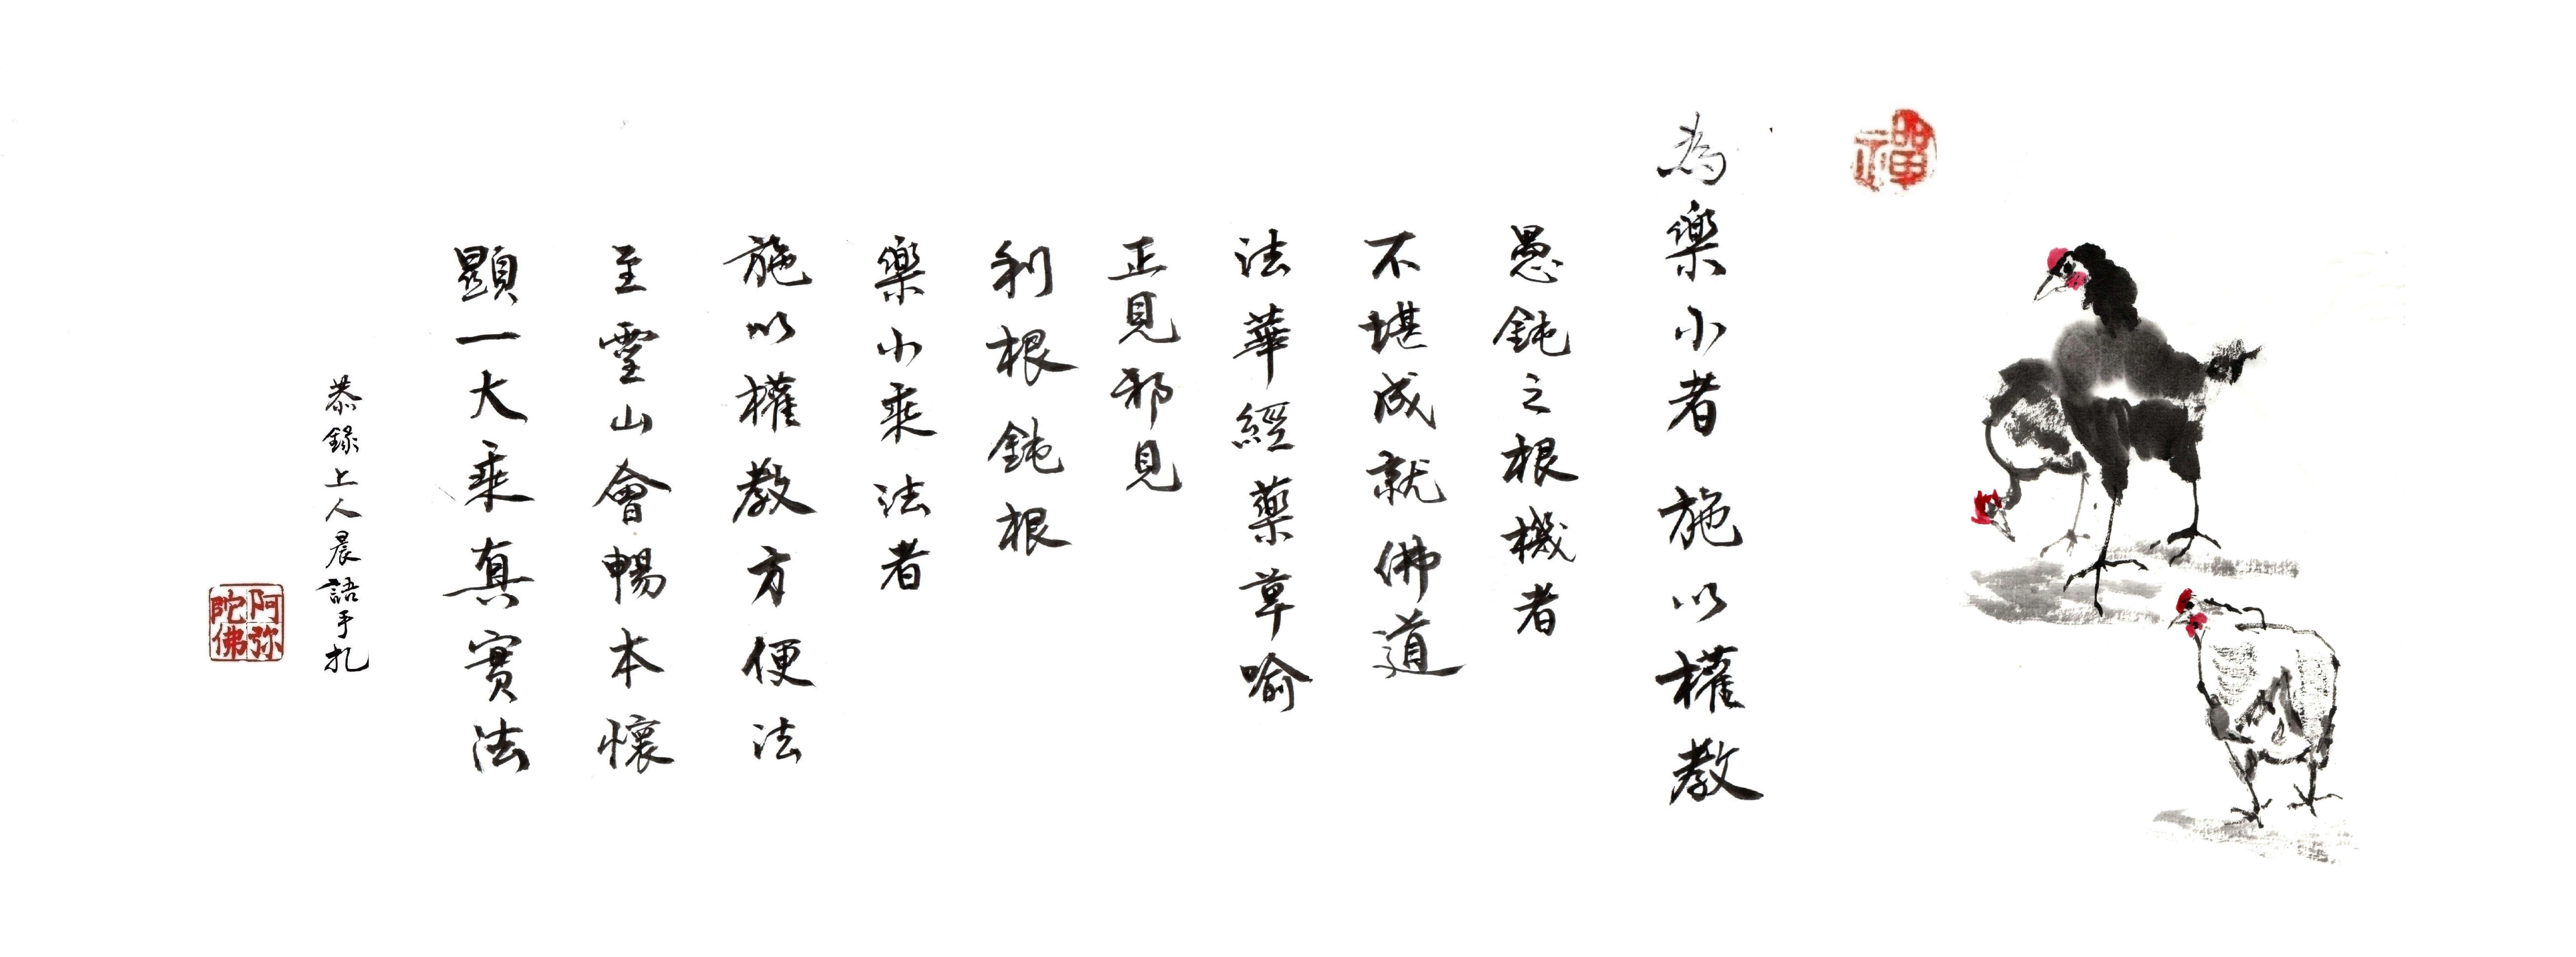 禪
為樂小者 施以權教
愚鈍之根機者
不堪成就佛道
法華經藥草喻
正見邪見
利根鈍根
樂小乘法者
施以權教方便法
至靈山會暢本懷
顯一大乘真實法
恭錄上人晨語手扎
阿弥陀佛